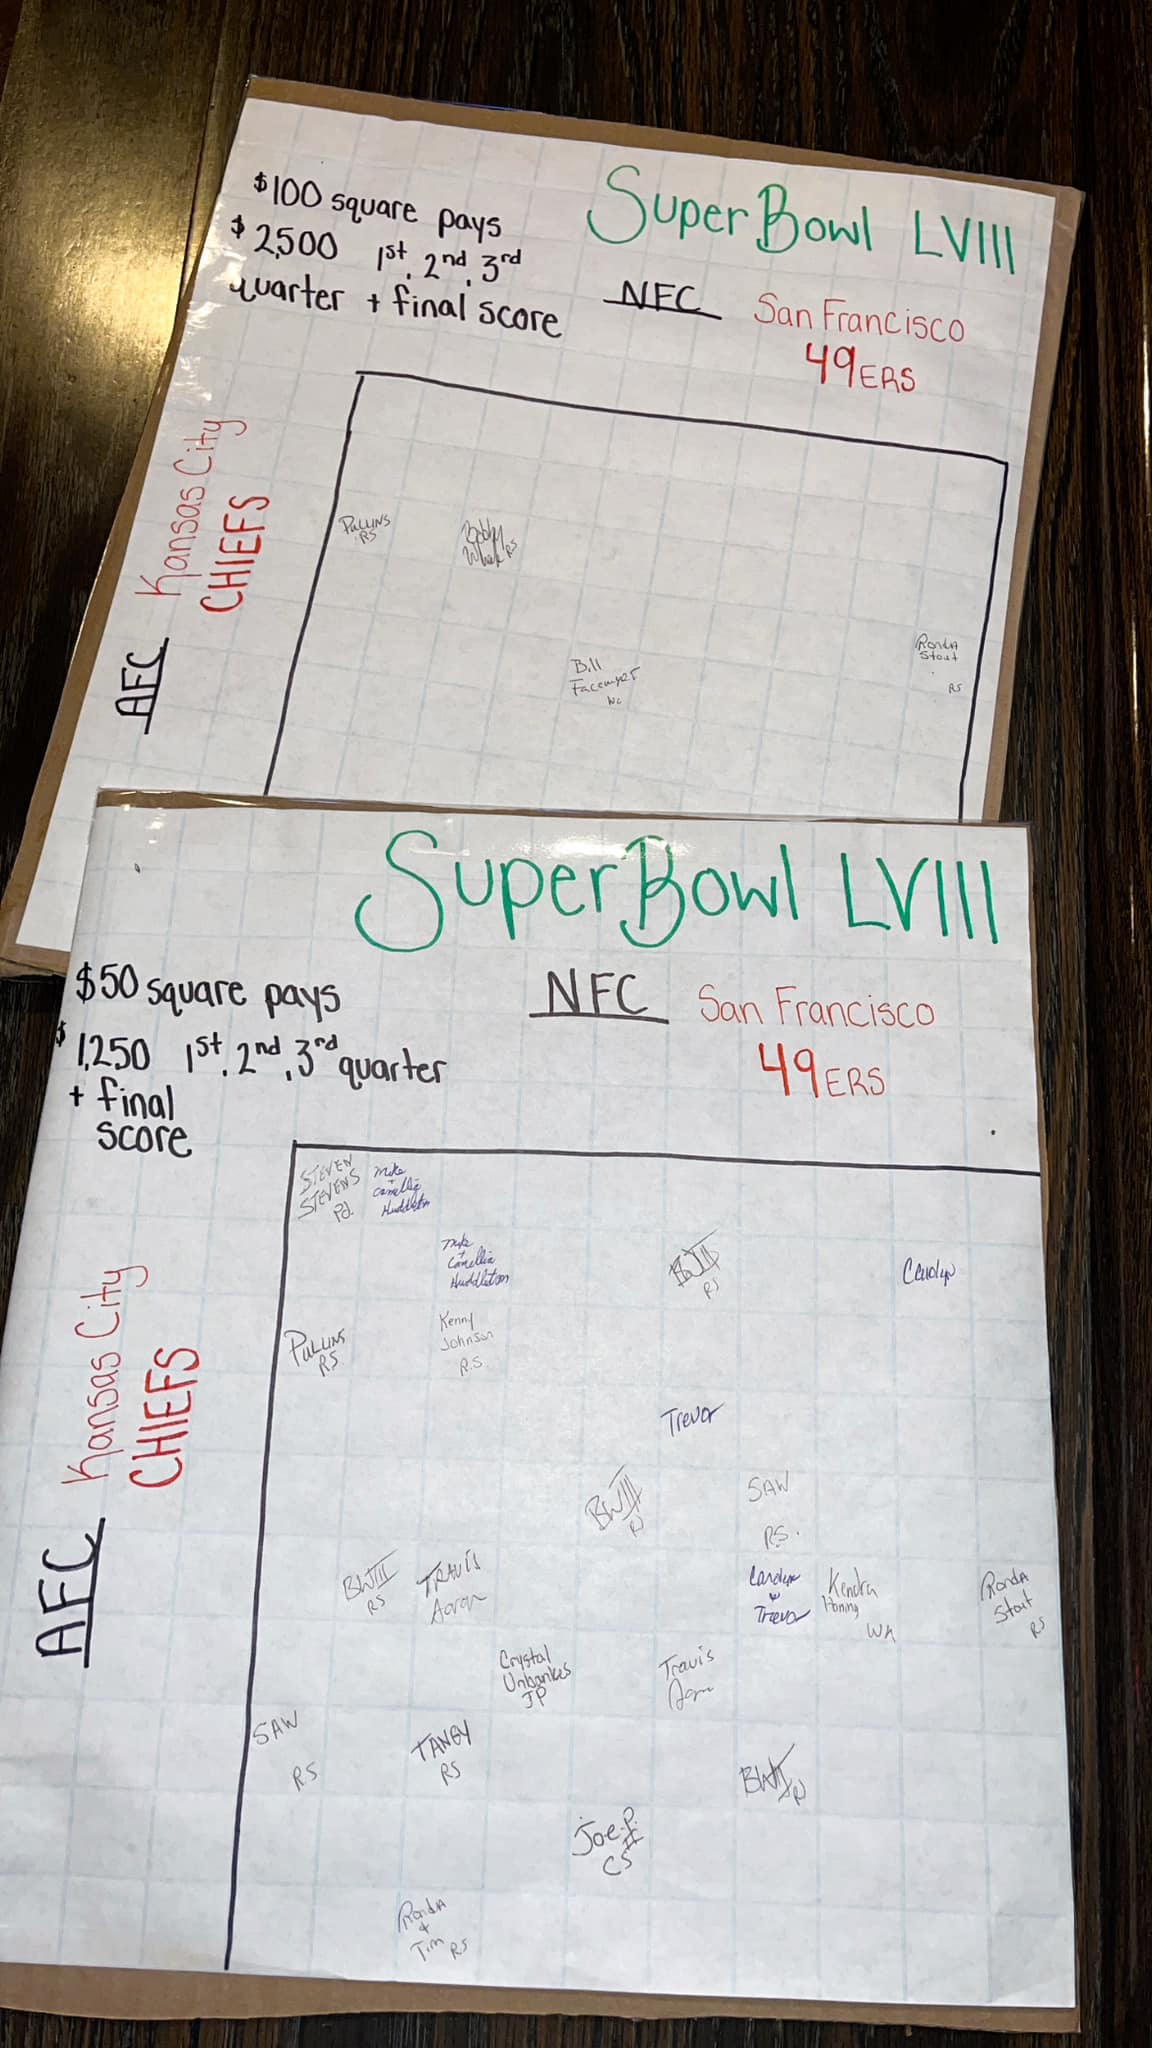 $100 square pays
$2,500 1st, 2nd, 3rd
quarter + final score
Super Bowl LVIII
NFC San Francisco
49ERS
Kansas City
CHIEFS
AFC
PULLINS
RS
Bobby
RS
Bill
WC
Ronda
Stout
RS
Super Bowl LVIII
$50 square pays
$1,250 1st, 2nd, 3rd quarter
+ final
score
NFC San Francisco
49ERS
Kansas City
CHIEFS
AFC
STEVEN
STEVENS
Pd.
Mike
+
Camellia
Huddleston
Mike
+
Camellia
Huddleston
BWIII
RS
Carolyn
PULLINS
RS
Kenny
Johnson
R.S.
Trevor
BWIII
RS
SAW
RS.
BWIII
RS
TRAVIS
Aaron
Carolyn
Trevor
Kendra
Ronda
Stout
RS
Crystal
JP
Travis
SAW
RS
TANGY
RS
BWIII
RS
Joe P.
II
CS
Ronda
+
Tim RS